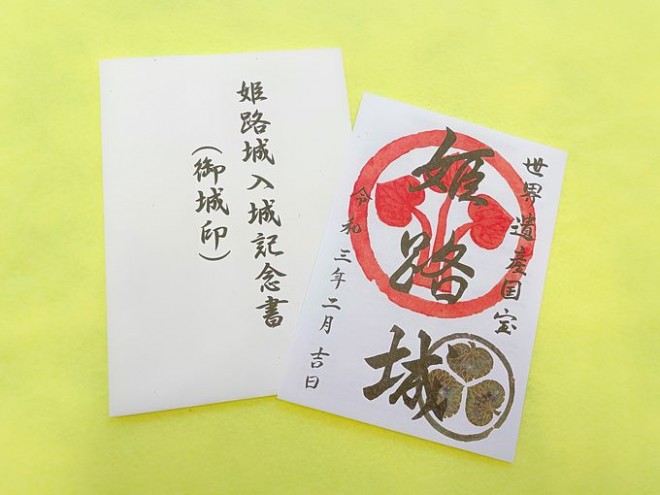 姫路城入城記念書
(御城印)
世界遺産国宝
姫路城
令和三年二月吉日